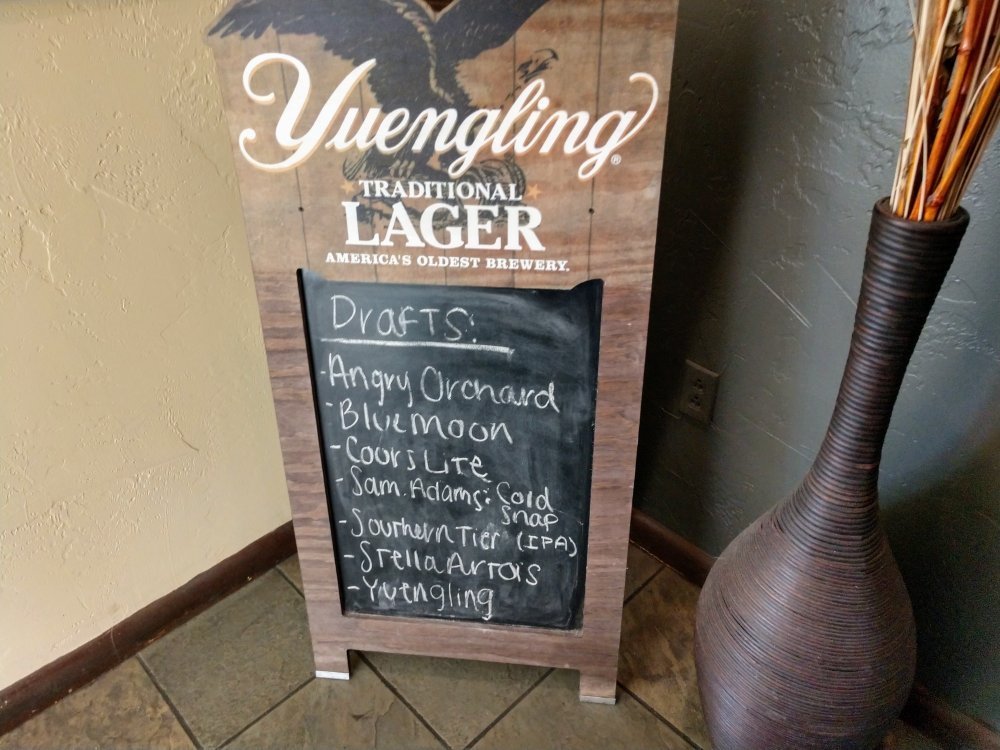 Yuengling®
TRADITIONAL
LAGER
AMERICA'S OLDEST BREWERY.
Drafts:
-Angry Orchard
-Blue Moon
-Coors Lite
-Sam. Adams: Cold
Snap
-Southern Tier (IPA)
-Stella Artois
-Yuengling